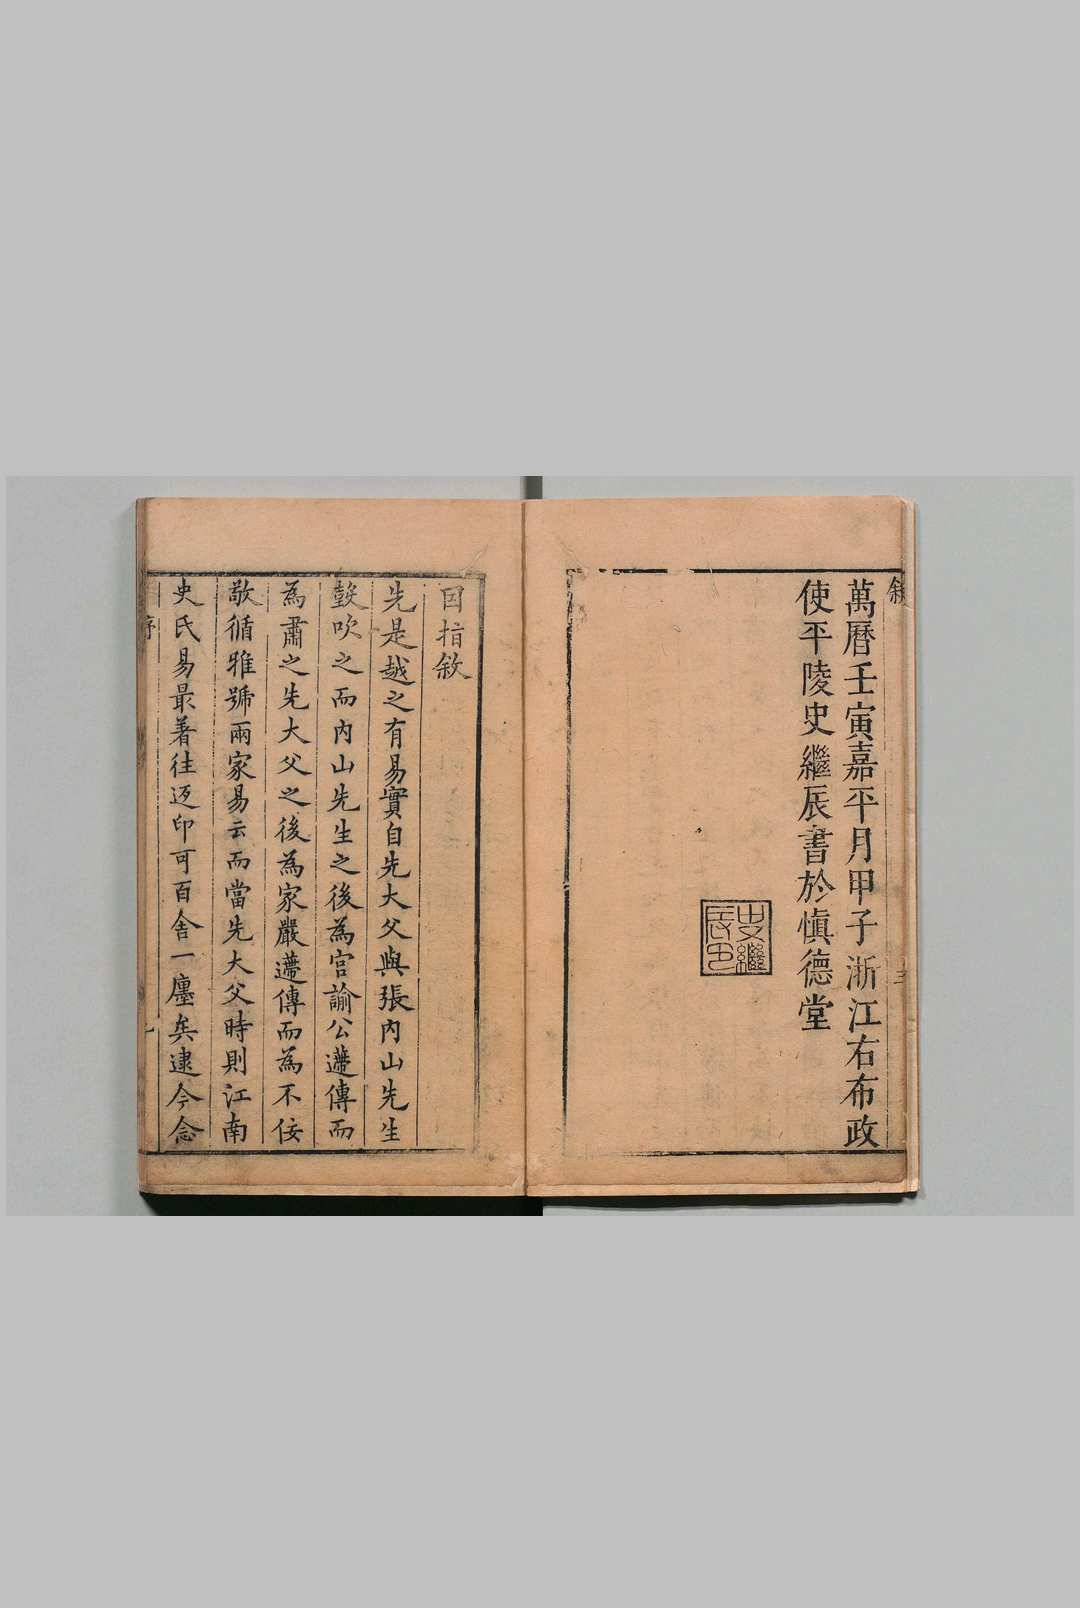 敘
萬曆壬寅嘉平月甲子浙江右布政
使平陵史繼辰書於慎德堂
史繼辰印
三
因指敘
先是越之有易實自先大父與張內山先生
鼓吹之而內山先生之後為宮諭公遞傳而
為肅之先大父之後為家嚴遞傳而為不佞
敬循雅號兩家易云而當先大父時則江南
史氏易最著往返印可百舍一廛矣逮今念
序